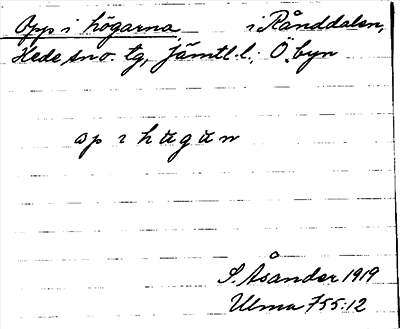 Opp i högarna i Rånddalen,
Hede sn o. tg, Jämtl. l.; Ö. byn
ap i hʉgʉn
S. Åsander 1919
Ulma 755:12